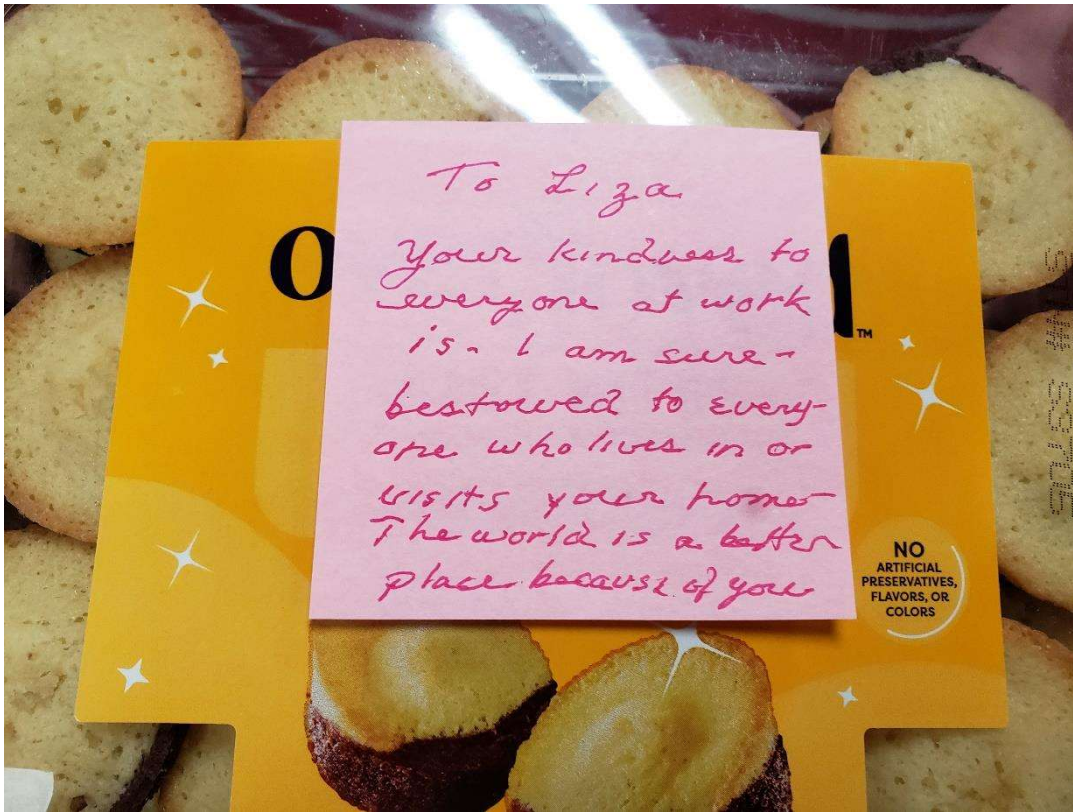 To Liza
Your kindness to
everyone at work
is - I am sure -
bestowed to every-
one who lives in or
visits your home
The world is a better
place because of you
TM
NO
ARTIFICIAL
PRESERVATIVES,
FLAVORS, OR
COLORS